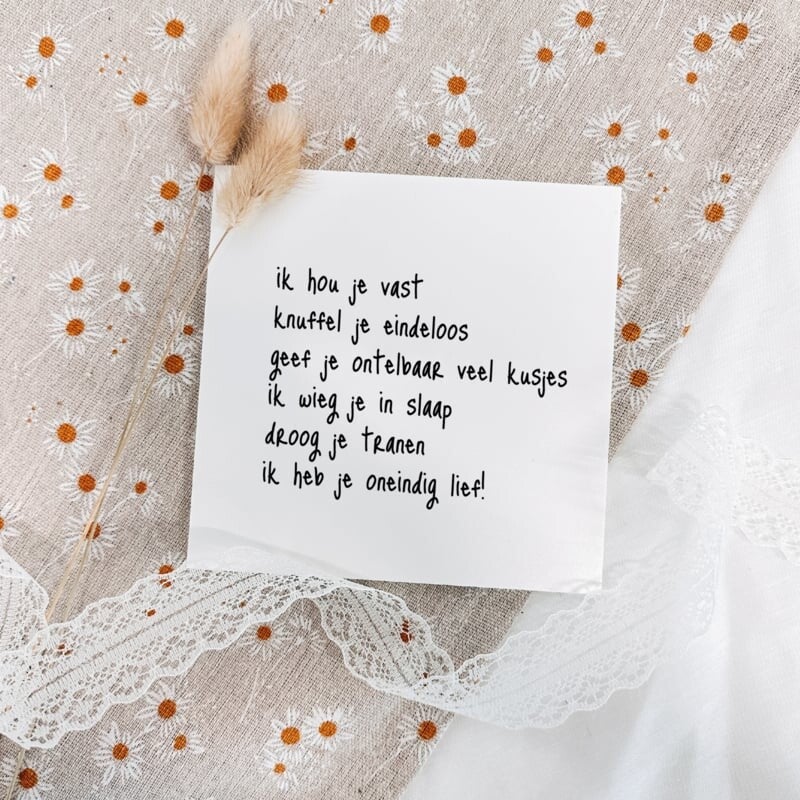 ik hou je vast
knuffel je eindeloos
geef je ontelbaar veel kusjes
ik wieg je in slaap
droog je tranen
ik heb je oneindig lief!